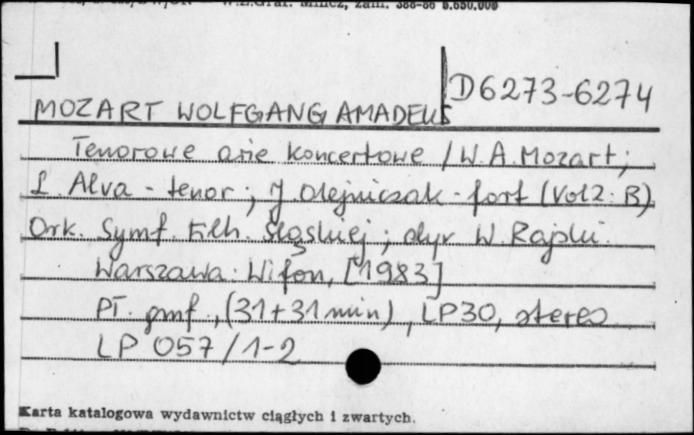 W.Z.Graf. Mincz, zam. 388-86 5.650.000
D6273-6274
MOZART WOLFGANG AMADEUS
Tenorowe arie koncertowe / W. A. Mozart ;
L. Alva - tenor ; J. Olejniczak - fort (Vol 2: B)
Ork. Symf. Filh. Śląskiej ; dyr W. Rajski.
Warszawa : Wifon, [1983]
Pł. gmf., (31+31 min), LP30, stereo
LP 057/1-2
Karta katalogowa wydawnictw ciągłych i zwartych.